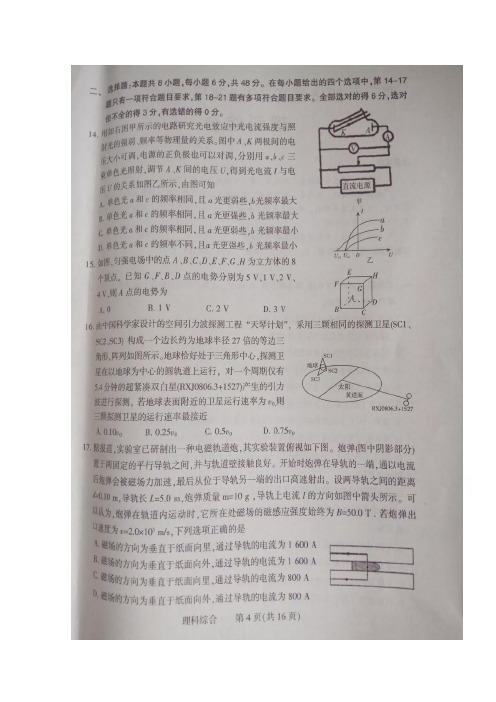 二、选择题:本题共8小题,每小题6分,共48分。在每小题给出的四个选项中,第14-17
题只有一项符合题目要求,第18-21题有多项符合题目要求。全部选对的得6分,选对
但不全的得3分,有选错的得0分。
14. 用如右图甲所示的电路研究光电效应中光电流强度与照
射光的强弱、频率等物理量的关系。图中A、K两极间的电
压大小可调,电源的正负极也可以对调,分别用a、b、c三
束单色光照射,调节A、K间的电压U,得到光电流I与电
压U的关系如图乙所示,由图可知
A. 单色光a和c的频率相同,且a光更弱些,b光频率最大
B. 单色光a和c的频率相同,且a光更强些,b光频率最大
C. 单色光a和c的频率相同,且a光更弱些,b光频率最小
D. 单色光a和c的频率不同,且a光更强些,b光频率最小
K A
A
V
直流电源
甲
I
a
b
c
O U
乙
15. 如图,匀强电场中的点A、B、C、D、E、F、G、H为立方体的8
个顶点。已知G、F、B、D点的电势分别为5 V、1 V、2 V、
4 V,则A点的电势为
A. 0 B. 1 V C. 2 V D. 3 V
E H
F G
A D
B C
16. 由中国科学家设计的空间引力波探测工程“天琴计划”,采用三颗相同的探测卫星(SC1、
SC2、SC3)构成一个边长约为地球半径27倍的等边三
角形,阵列如图所示。地球恰好处于三角形中心,探测卫
星在以地球为中心的圆轨道上运行,对一个周期仅有
5.4分钟的超紧凑双白星(RXJ0806.3+1527)产生的引力
波进行探测,若地球表面附近的卫星运行速率为v₀,则
三颗探测卫星的运行速率最接近
A. 0.10v₀ B. 0.25v₀ C. 0.5v₀ D. 0.75v₀
SC1
地球
SC2
SC3
太阳
黄道面
RXJ0806.3+1527
17. 据报道,实验室已研制出一种电磁轨道炮,其实验装置俯视如下图。炮弹(图中阴影部分)
置于两固定的平行导轨之间,并与轨道壁接触良好。开始时炮弹在导轨的一端,通以电流
后炮弹会被磁场力加速,最后从位于导轨另一端的出口高速射出。设两导轨之间的距离
d=0.10 m,导轨长L=5.0 m,炮弹质量m=10 g,导轨上电流I的方向如图中箭头所示。可
以认为,炮弹在轨道内运动时,它所在处磁场的磁感应强度始终为B=50.0 T.若炮弹出
口速度为v=2.0×10³ m/s,下列选项正确的是
A. 磁场的方向为垂直于纸面向里,通过导轨的电流为1 600 A
B. 磁场的方向为垂直于纸面向外,通过导轨的电流为1 600 A
C. 磁场的方向为垂直于纸面向里,通过导轨的电流为800 A
D. 磁场的方向为垂直于纸面向外,通过导轨的电流为800 A
理科综合 第4页(共16页)